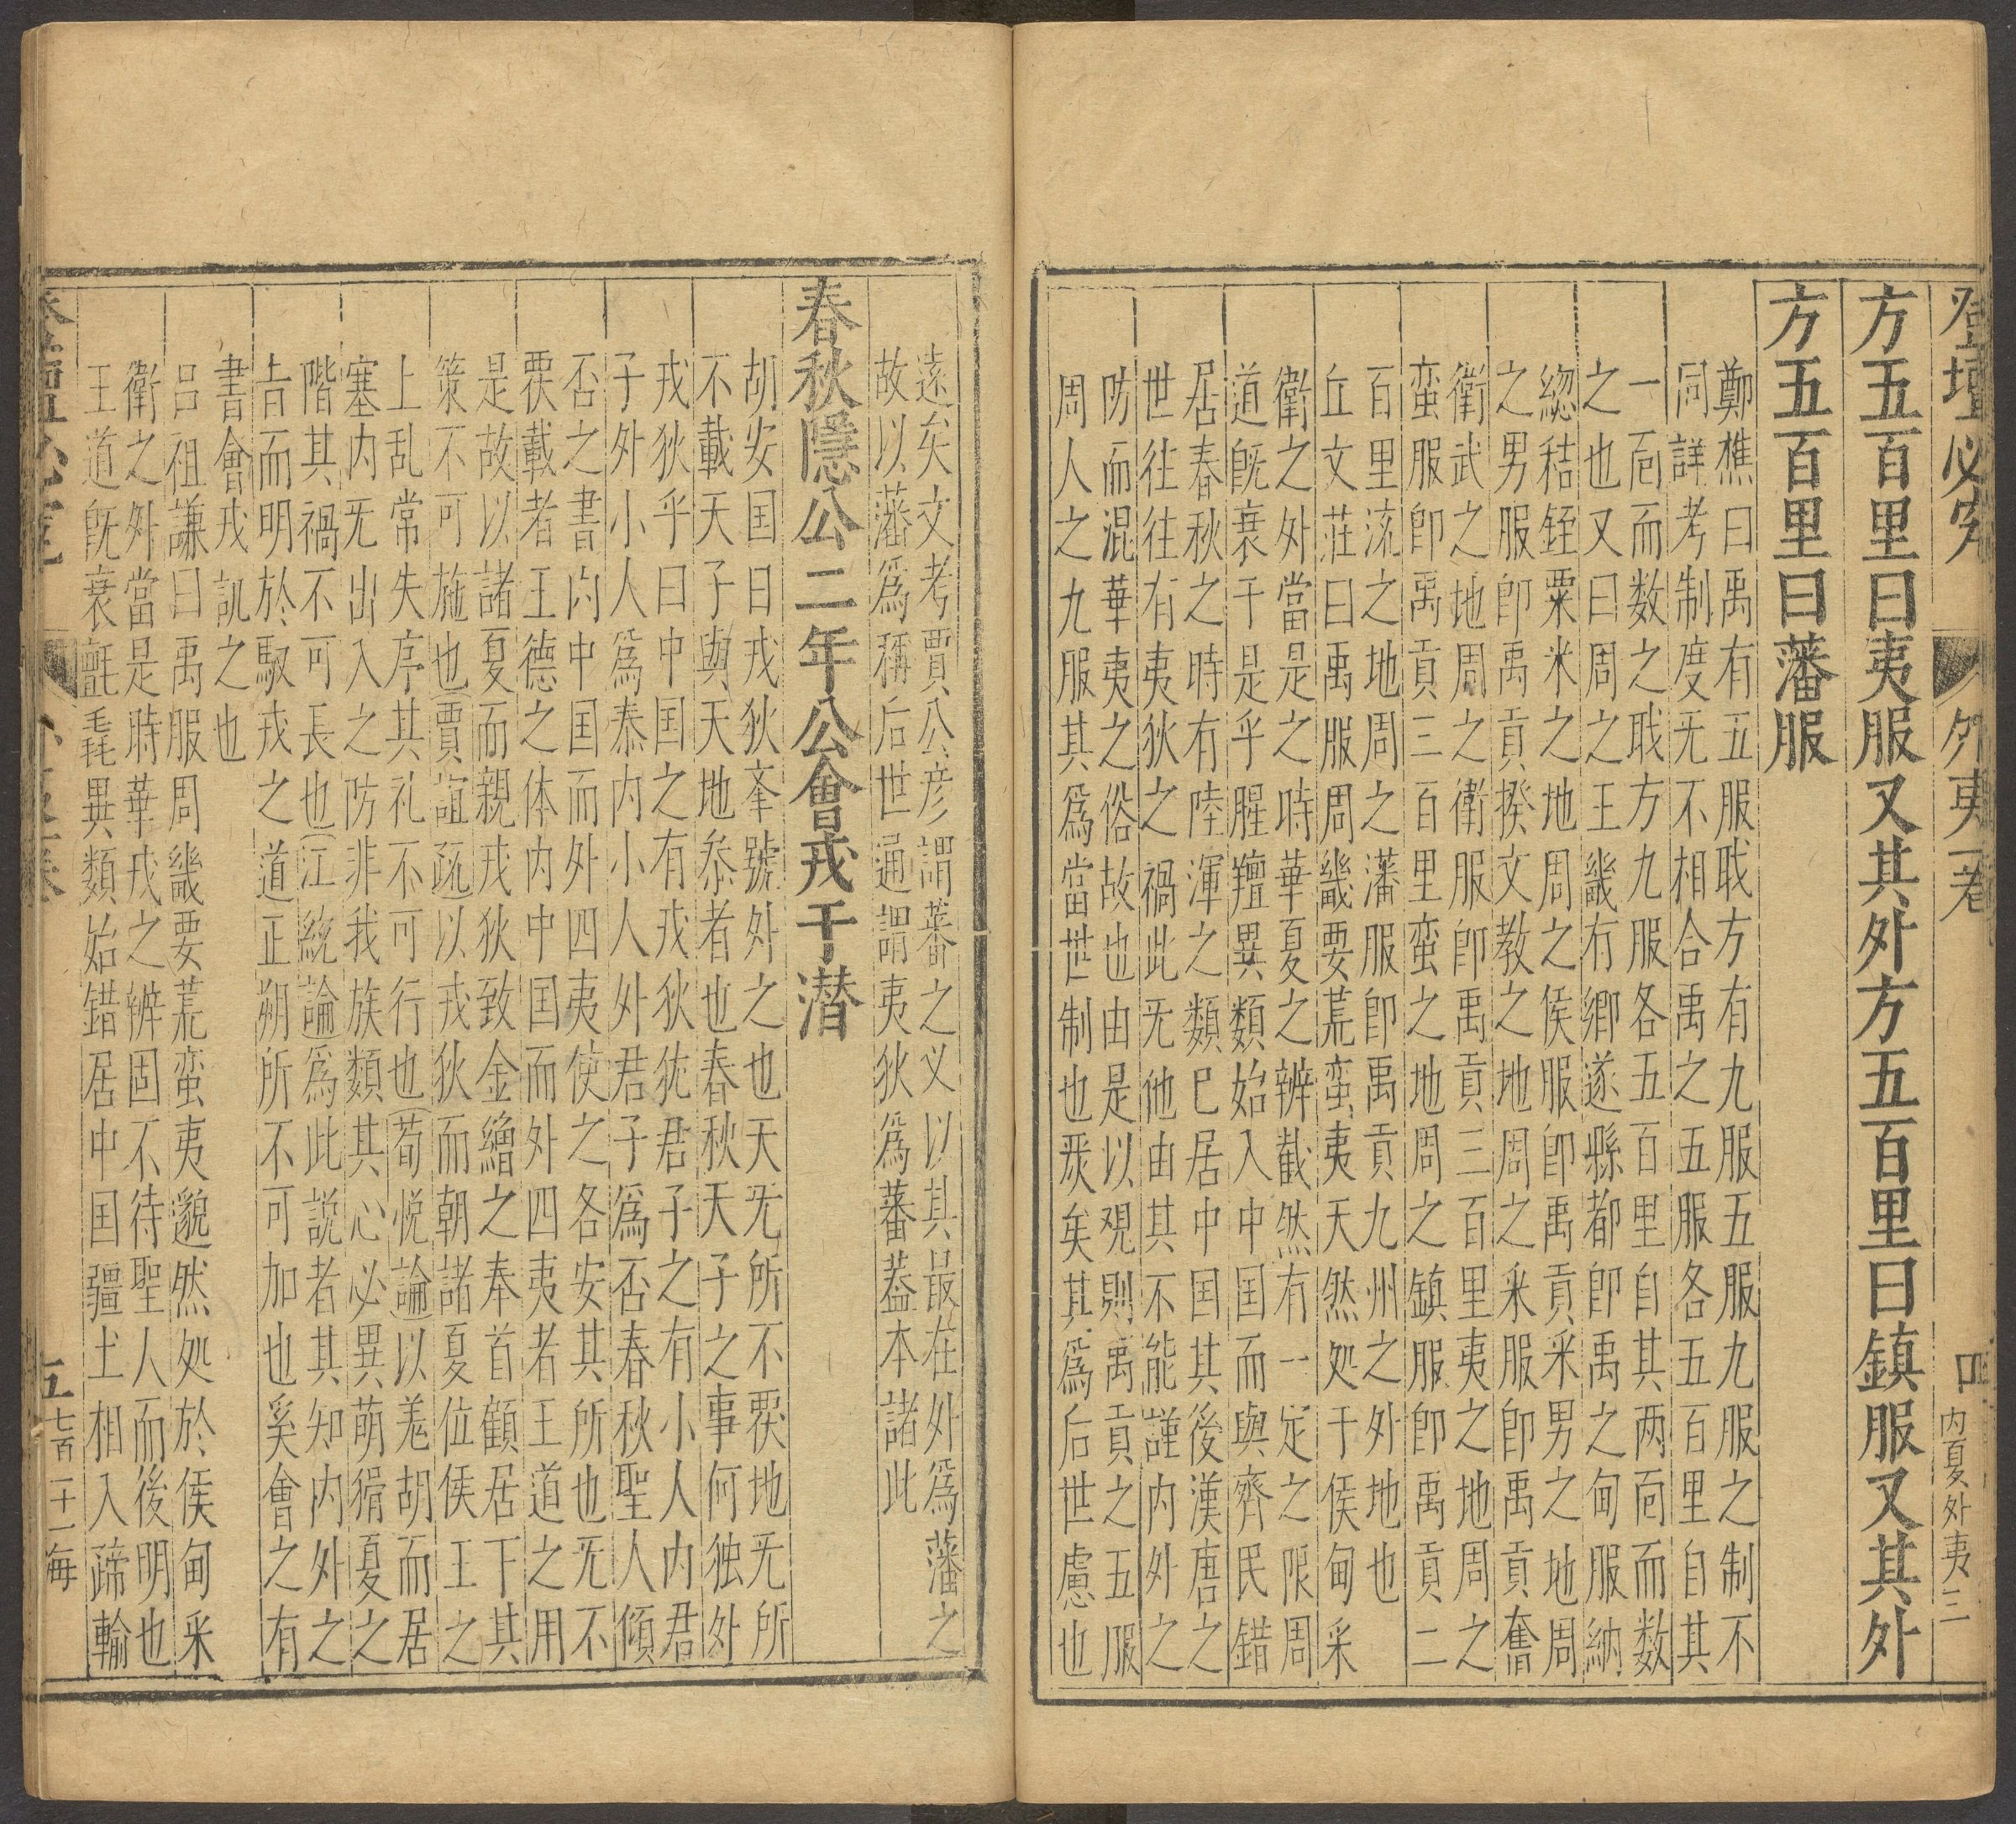 登壇必究 外夷一卷 四 内夏外夷三
方五百里曰夷服又其外方五百里曰鎮服又其外
方五百里曰藩服
鄭樵曰禹有五服職方有九服五服九服之制不
同詳考制度无不相合禹之五服各五百里自其
一面而数之職方九服各五百里自其两面而数
之也又曰周之王畿有鄉遂縣都即禹之甸服納
緫秸銍粟米之地周之侯服即禹貢采男之地周
之男服即禹貢揆文教之地周之采服即禹貢奮
衛武之地周之衛服即禹貢三百里夷之地周之
蛮服即禹貢三百里蛮之地周之鎮服即禹貢二
百里流之地周之藩服即禹貢九州之外地也
丘文莊曰禹服周畿要荒蛮夷天然処于侯甸采
衛之外當是之時華夏之辨截然有一定之限周
道既衰于是乎腥羶異類始入中国而與齊民錯
居春秋之時有陸渾之類已居中国其後漢唐之
世往往有夷狄之禍此无他由其不能謹内外之
防而混華夷之俗故也由是以观則禹貢之五服
周人之九服其為當世制也㳟矣其為后世慮也
遠矣文考賈公彦謂蕃之义以其最在外為藩之
故以藩為稱后世通謂夷狄為蕃葢本諸此
春秋隱公二年公會戎于潜
胡安国曰戎狄峯號外之也天无所不覆地无所
不載天子與天地叅者也春秋天子之事何独外
戎狄乎曰中国之有戎狄犹君子之有小人内君
子外小人為泰内小人外君子為否春秋聖人傾
否之書内中国而外四夷使之各安其所也无不
覆載者王德之体内中国而外四夷者王道之用
是故以諸夏而親戎狄致金繒之奉首顧居下其
策不可施也賈誼疏以戎狄而朝諸夏位侯王之
上乱常失序其礼不可行也荀悦論以羗胡而居
塞内无出入之防非我族類其心必異萌猾夏之
階其禍不可長也江統論為此説者其知内外之
旨而明於馭戎之道正朔所不可加也奚會之有
書會戎訊之也
吕祖謙曰禹服周畿要荒蛮夷邈然処於侯甸采
衛之外當是時華戎之辨固不待聖人而後明也
王道既衰氈毳異類始錯居中国疆土相入蹄輪
五 七百二十一海